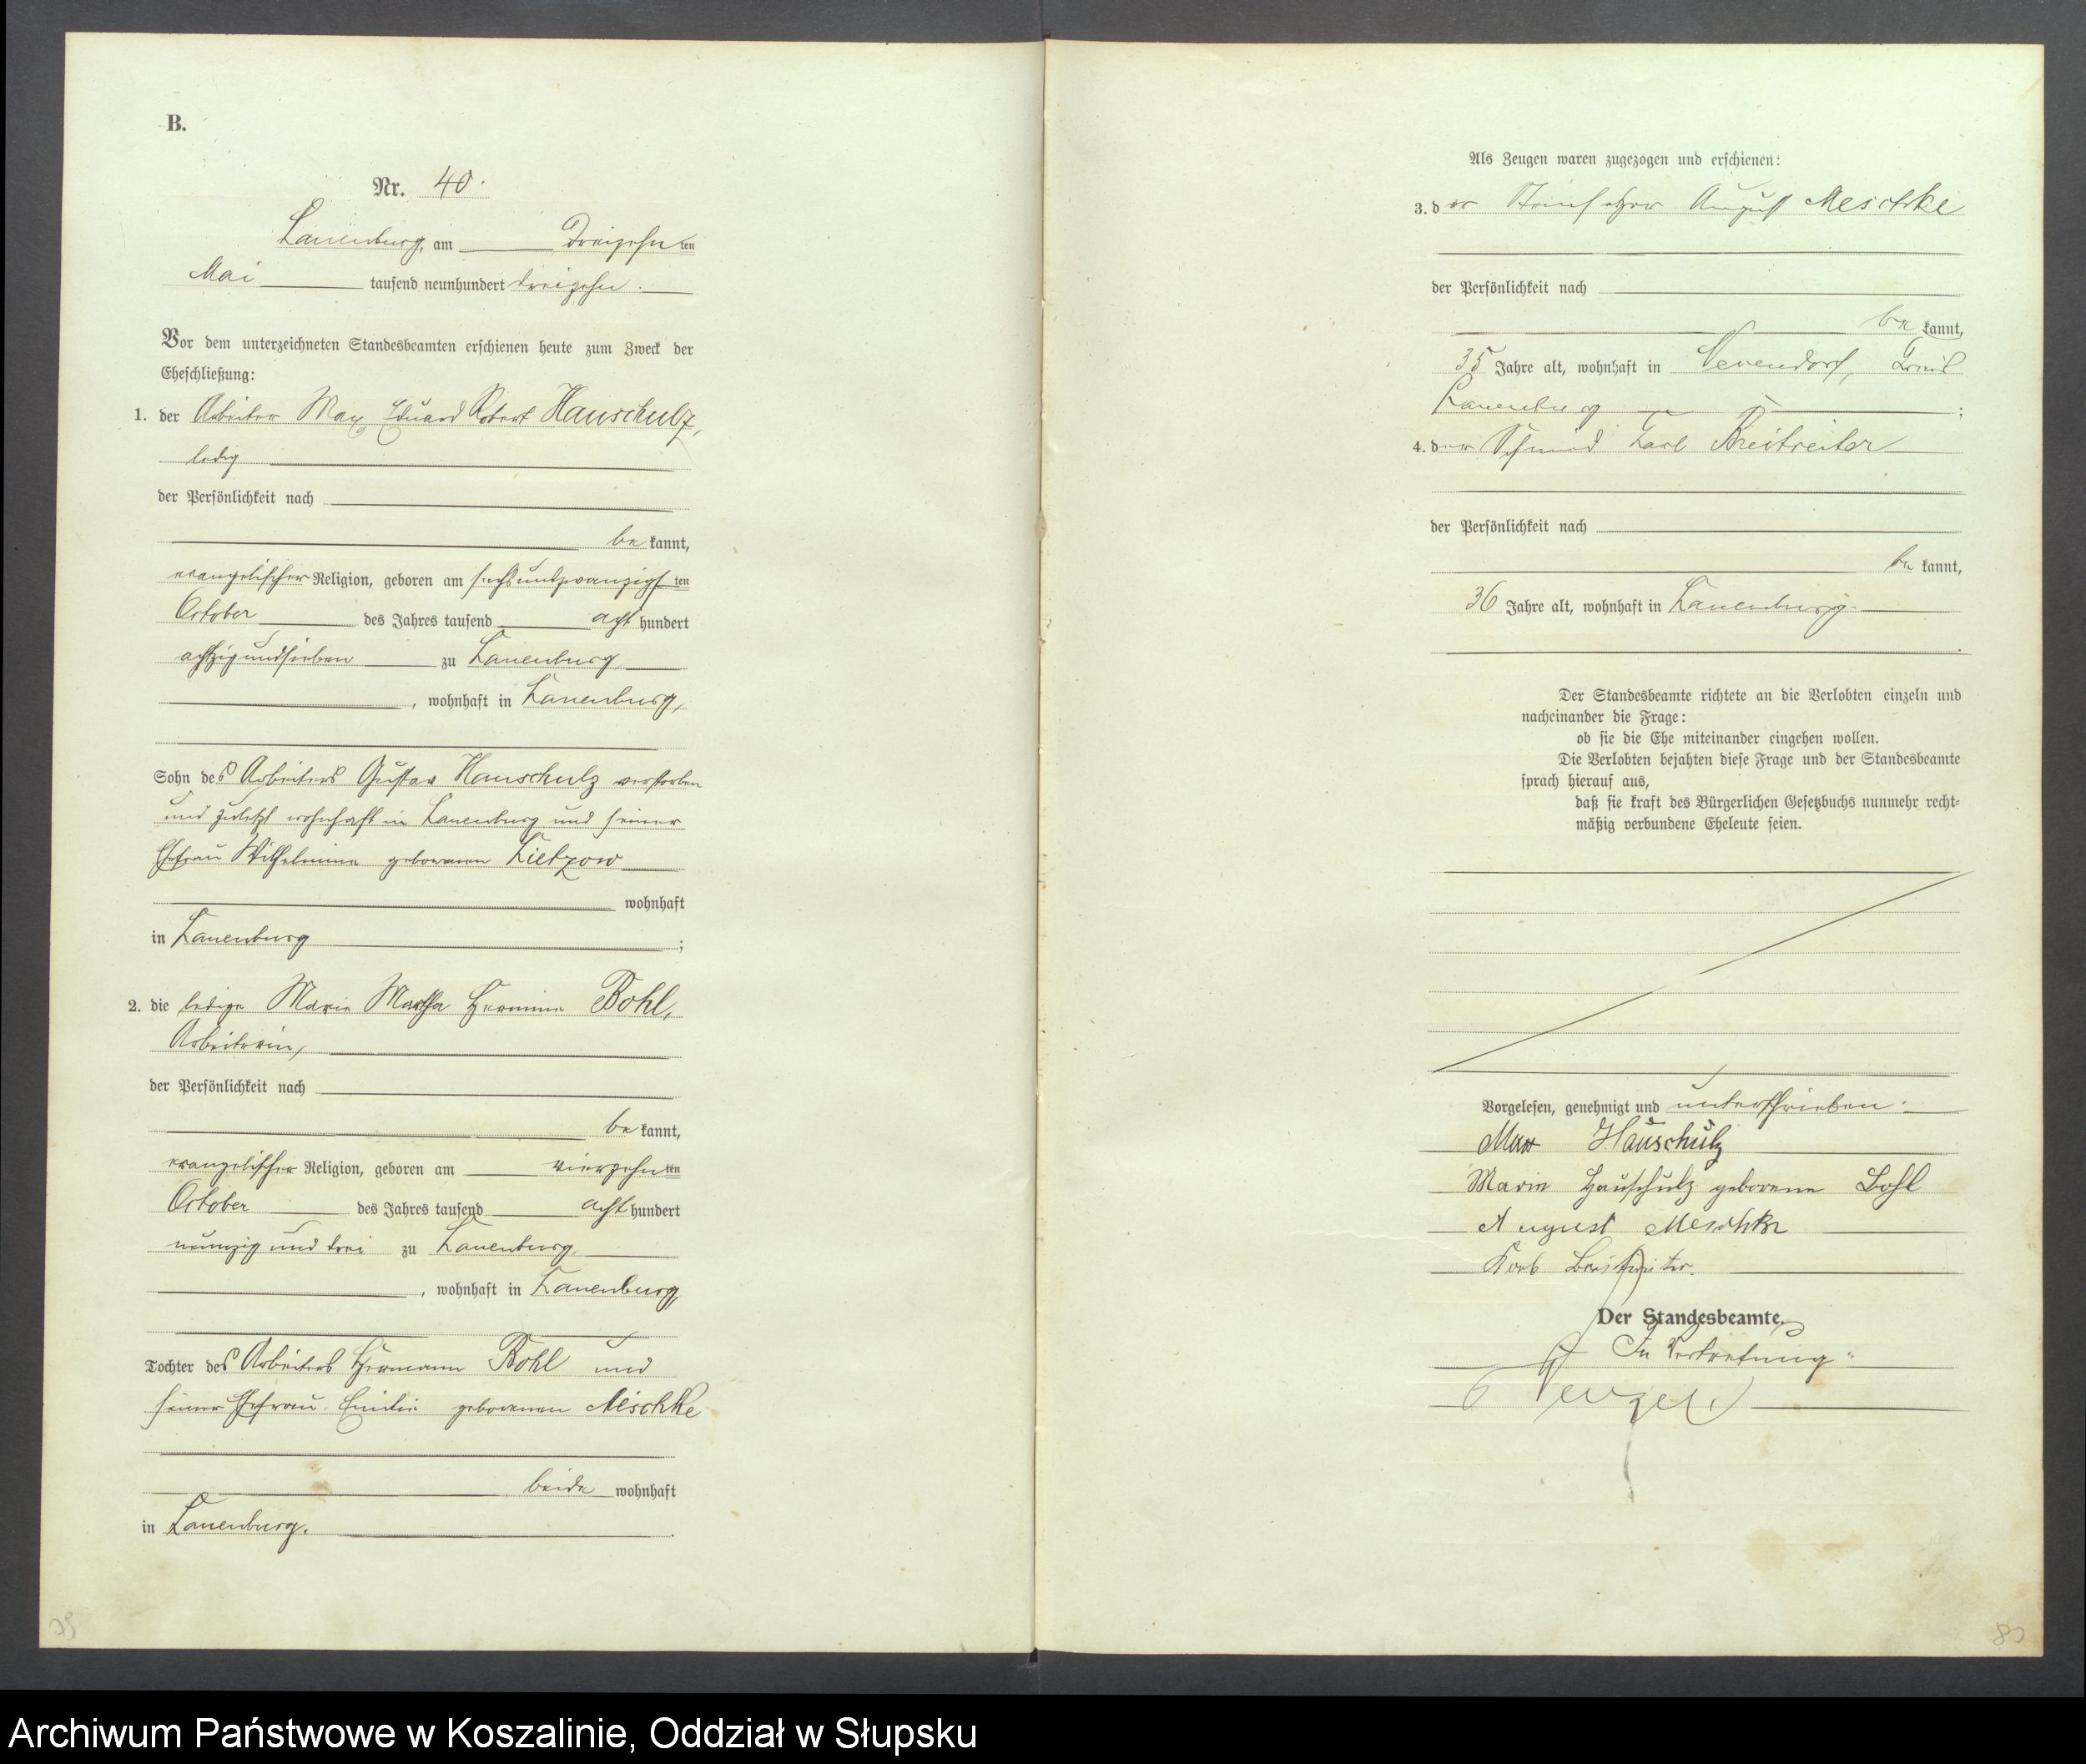 B.
Nr. 40.
Lauenburg, am Dreizehnten
Mai tausend neunhundert dreizehn.
Vor dem unterzeichneten Standesbeamten erschienen heute zum Zweck der
Eheschließung:
1. der Arbeiter Max Eduard Robert Hauschulz,
ledig
der Persönlichkeit nach
bekannt,
evangelischer Religion, geboren am sechsundzwanzigsten
October des Jahres tausend acht hundert
achtzigundsieben zu Lauenburg
, wohnhaft in Lauenburg,
Sohn des Arbeiters Gustav Hauschulz verstorben
und zuletzt wohnhaft in Lauenburg und seiner
Ehefrau Wilhelmine geborenen Lietzow
wohnhaft
in Lauenburg ;
2. die ledige Marie Martha Hermine Bohl,
Arbeiterin,
der Persönlichkeit nach
bekannt,
evangelischer Religion, geboren am vierzehnten
October des Jahres tausend acht hundert
neunzig und drei zu Lauenburg
, wohnhaft in Lauenburg
Tochter des Arbeiters Hermann Bohl und
seiner Ehefrau Emilie geborenen Meschke
beide wohnhaft
in Lauenburg.
Als Zeugen waren zugezogen und erschienen:
3. der Steinsetzer August Meschke
der Persönlichkeit nach
bekannt,
35 Jahre alt, wohnhaft in Neuendorf, Kreis
Lauenburg ;
4. der Schmied Karl Breitreiter
der Persönlichkeit nach
bekannt,
36 Jahre alt, wohnhaft in Lauenburg.
Der Standesbeamte richtete an die Verlobten einzeln und
nacheinander die Frage:
ob sie die Ehe miteinander eingehen wollen.
Die Verlobten bejahten diese Frage und der Standesbeamte
sprach hierauf aus,
daß sie kraft des Bürgerlichen Gesetzbuchs nunmehr recht-
mäßig verbundene Eheleute seien.
Vorgelesen, genehmigt und unterschrieben.
Max Hauschulz
Marie Hauschulz geborene Bohl
August Meschke
Karl Breitreiter.
Der Standesbeamte.
In Vertretung:
Archiwum Państwowe w Koszalinie, Oddział w Słupsku